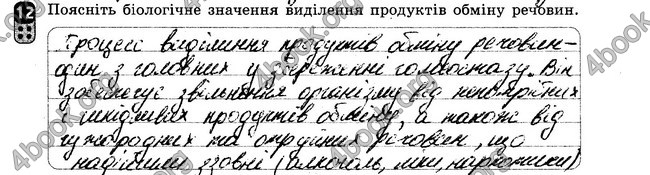 12 Поясніть біологічне значення виділення продуктів обміну речовин.
Процес виділення продуктів обміну речовин –
один з головних у збереженні гомеостазу. Він
забезпечує звільнення організму від непотрібних
і шкідливих продуктів обміну, а також від
чужорідних та отруйних речовин, що
надійшли ззовні (алкоголь, ліки, наркотики)